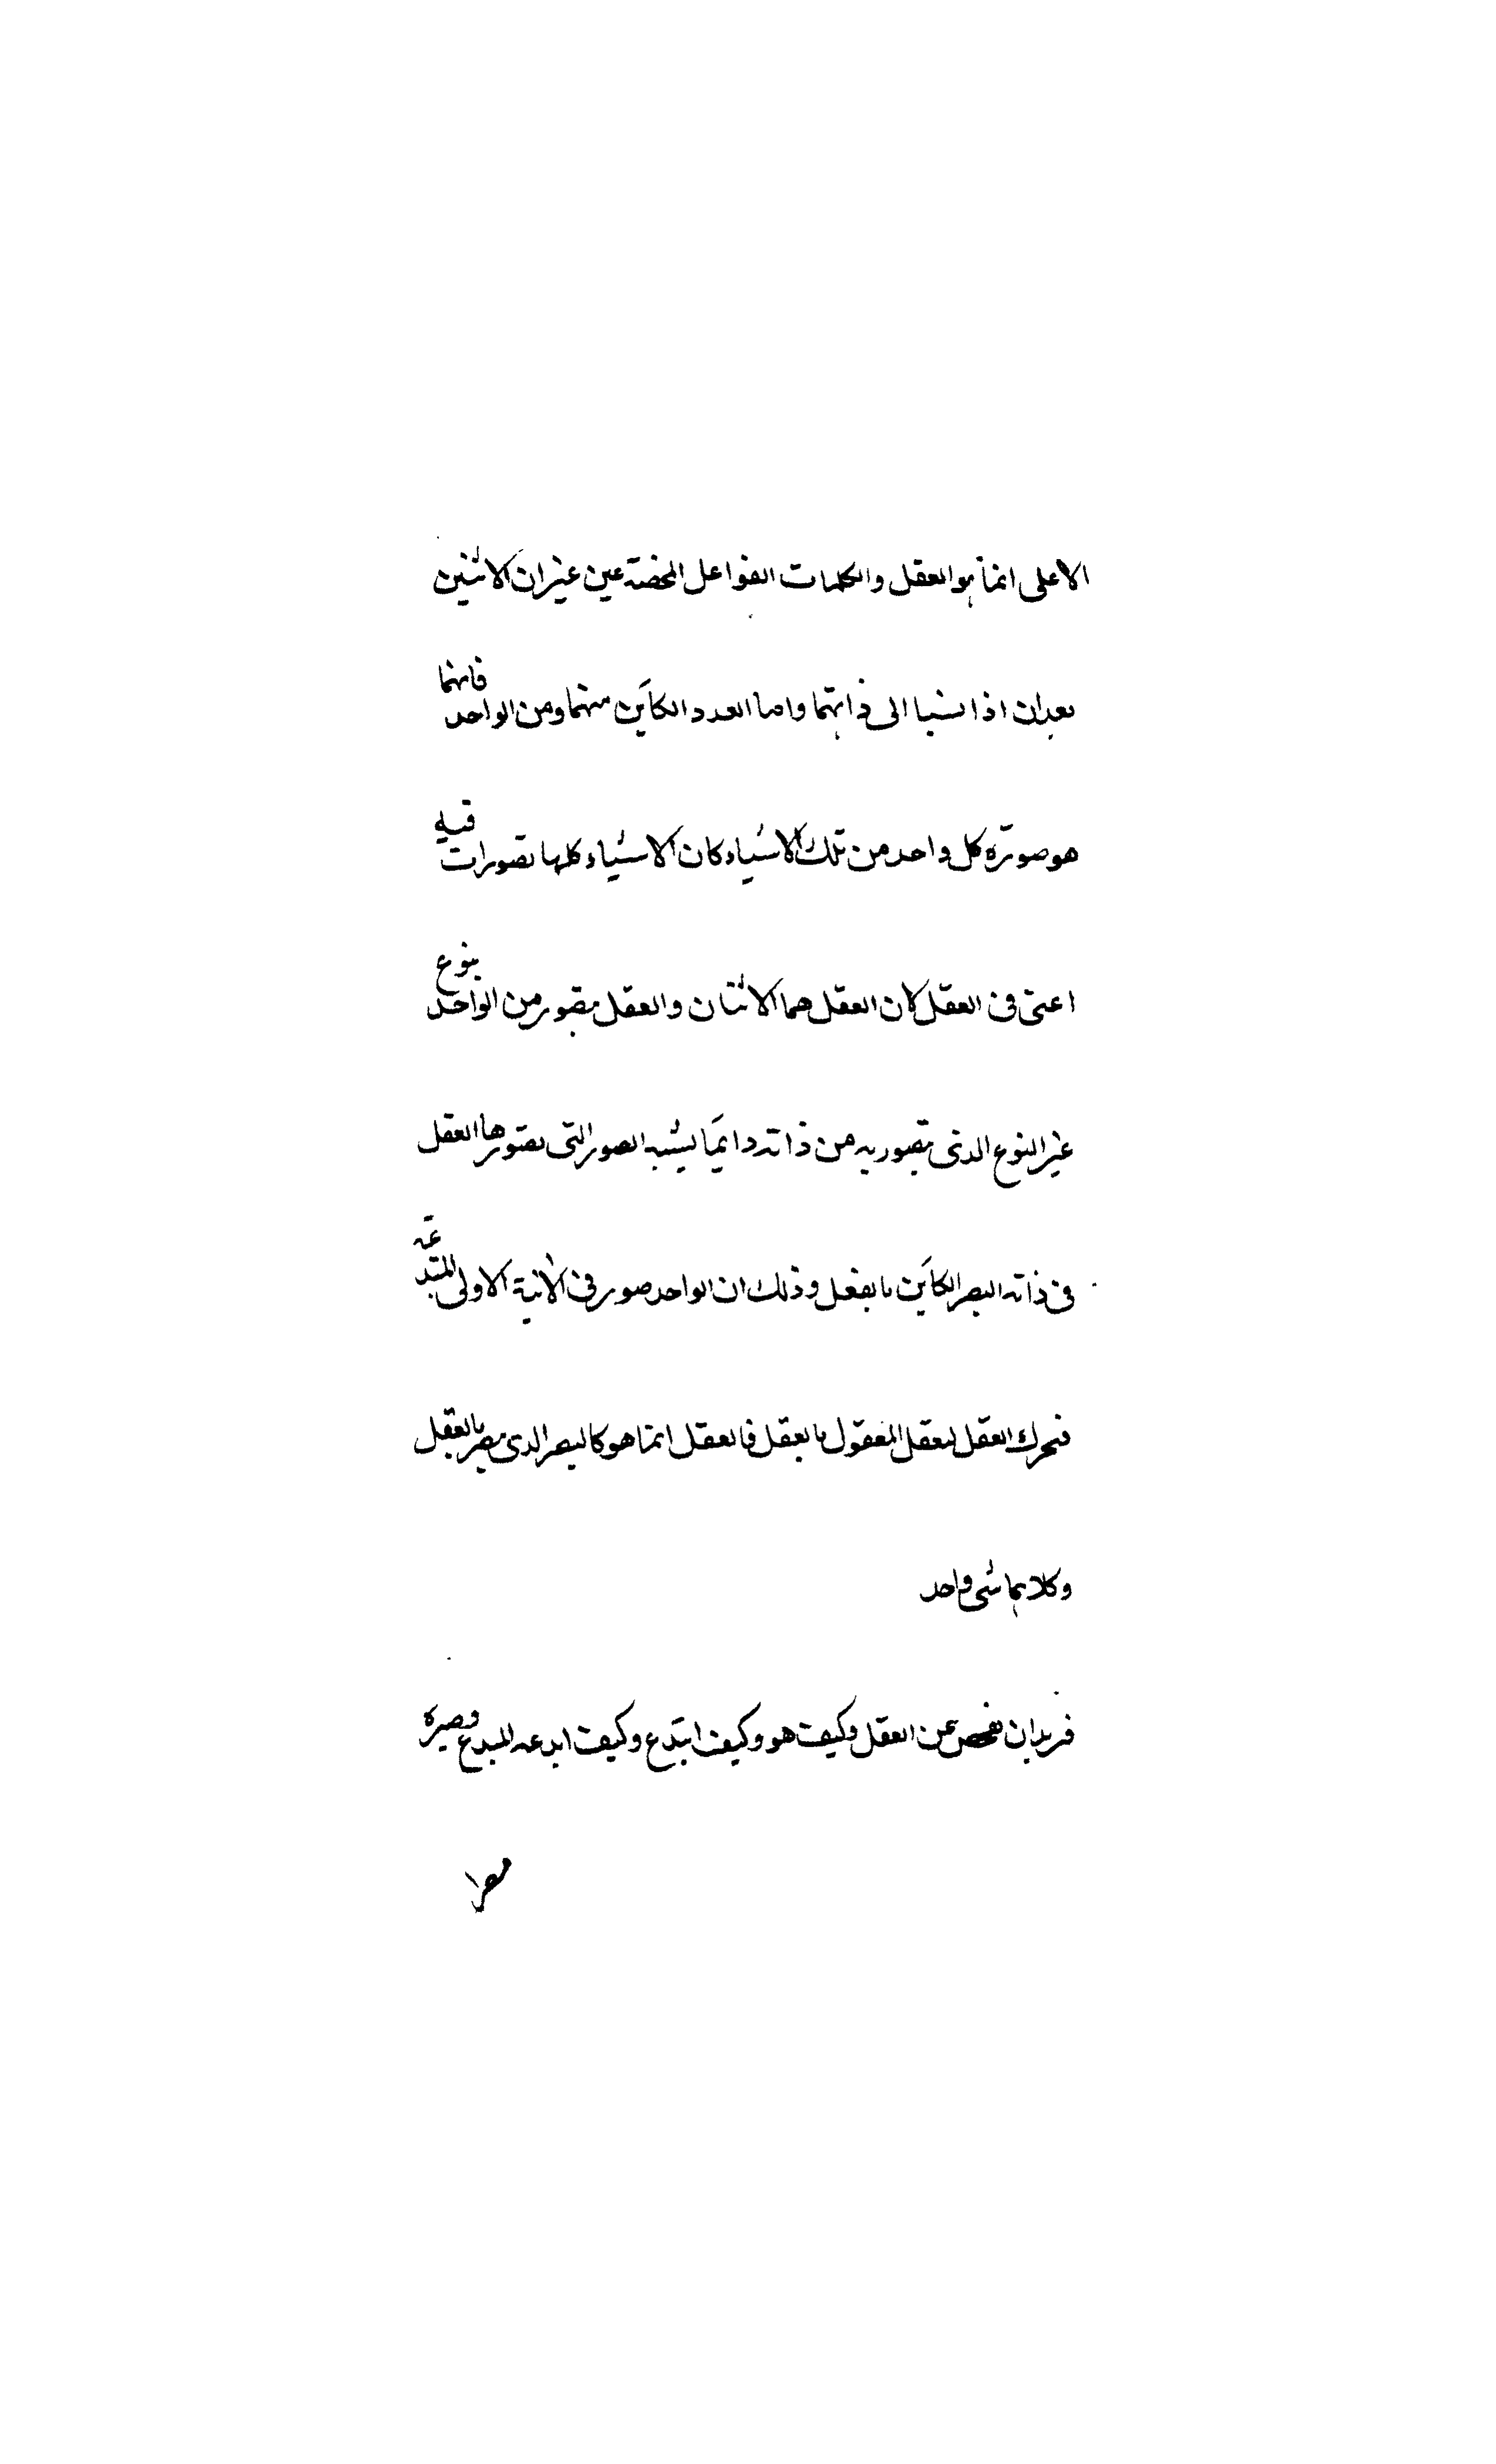 الاعلى انما هو العقل والكلمات الفواعل المحضة عين غير ان الاثنين
يعدان اذا نسبا الى ذاتهما واما العدد الكاين منهما ومن الواحد فانهما
هو صورة كل واحد من تلك الاشياء كان الاشياء كلها تصورات فيه
اعنى فى العقل كان العقل هما الاثنان والعقل يتصور من الواحد بنوع
غير النوع الذى يتصور به من ذاته دايما يشبه الصور التى تصورها العقل
فى ذاته البصر الكاين بالفعل وذلك ان الواحد صور فى الانية الاولى المبتدعة
فتحرك العقل لعقل المعقول بالعقل فالعقل انما هو كالبصر الذى يبصر بالعقل
وكلاهما شى واحد
فنريد ان نفحص عن العقل وكيف هو وكيف ابتدع وكيف ابدعه المبدع وصيره
مبصرا